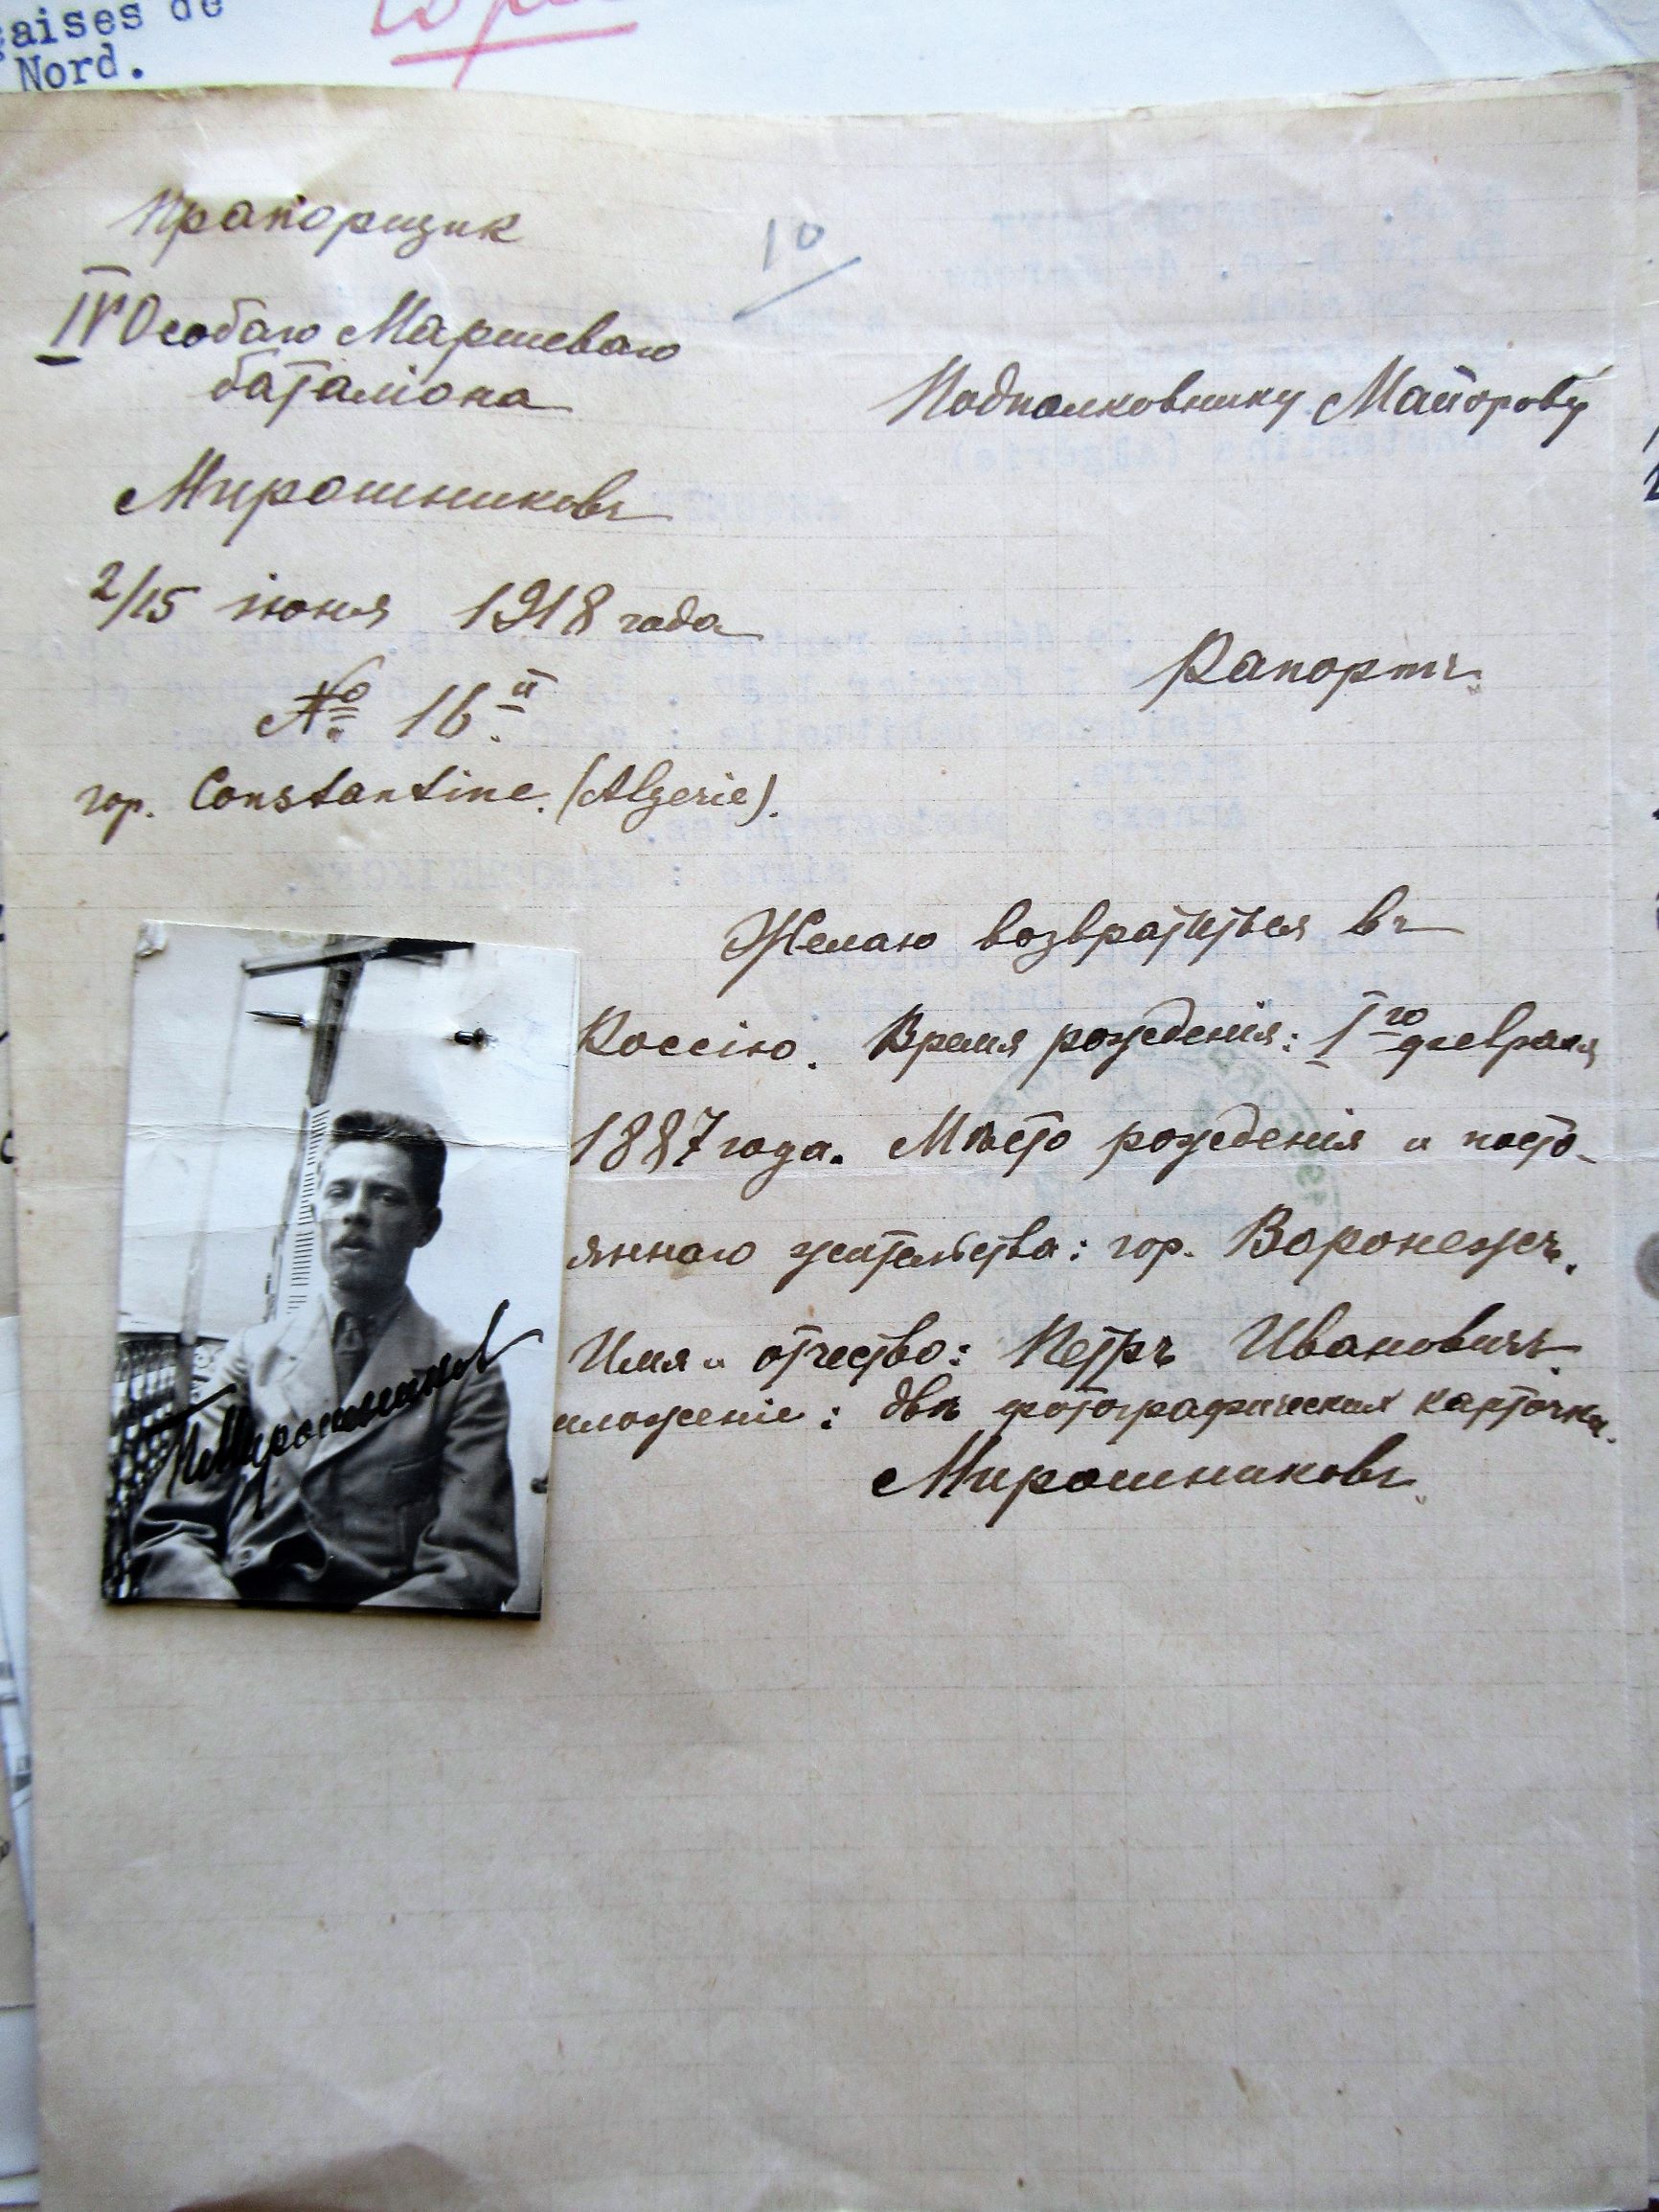 çaises de
Nord.
Copie
10
Прапорщик
IV Особаго Маршеваго
баталiона
Мирошниковъ
2/15 iюня 1918 года
№ 16й.
гор. Constantine. (Algerie).
Подполковнику Майорову
Рапортъ.
Желаю возвратиться въ
Россiю. Время рожденiя: 1го февраля
1887 года. Мѣсто рожденiя и посто-
яннаго жительства: гор. Воронежъ.
Имя и отчество: Петръ Ивановичъ.
иложенiе: двѣ фотографическия карточки.
Мирошниковъ.
ПМирошников